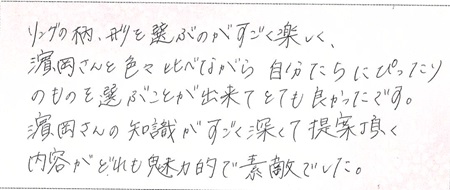 リングの柄、形を選ぶのがすごく楽しく、
濱岡さんと色々比べながら自分たちにぴったり
のものを選ぶことが出来てとても良かったです。
濱岡さんの知識がすごく深くて提案頂く
内容がどれも魅力的で素敵でした。